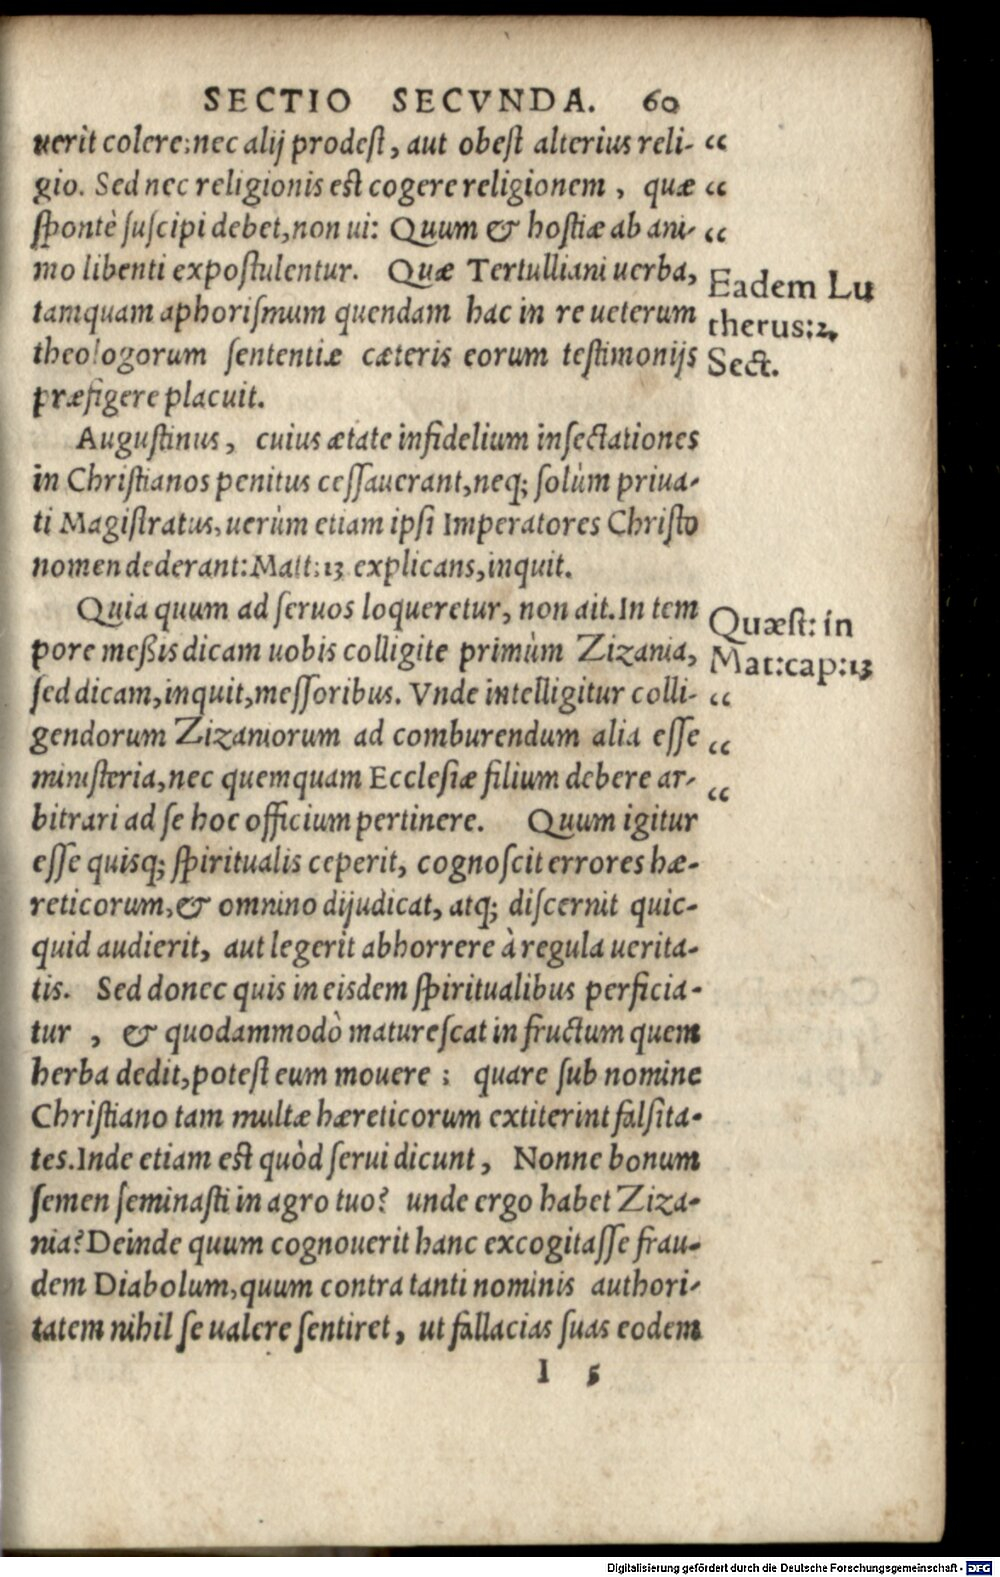 SECTIO SECVNDA. 60
uerit colere: nec alij prodest, aut obest alterius reli- “
gio. Sed nec religionis est cogere religionem, quæ “
spontè suscipi debet, non ui: Quum & hostiæ ab ani- “
mo libenti expostulentur. Quæ Tertulliani uerba,
tamquam aphorismum quendam hac in re ueterum
theologorum sententiæ cæteris eorum testimonijs
præfigere placuit.
Eadem Lu
therus: 2.
Sect.
Augustinus, cuius ætate infidelium insectationes
in Christianos penitus cessauerant, neq; solùm priua-
ti Magistratus, uerùm etiam ipsi Imperatores Christo
nomen dederant: Matt: 13 explicans, inquit.
Quia quum ad seruos loqueretur, non ait. In tem
pore meßis dicam uobis colligite primùm Zizania,
sed dicam, inquit, messoribus. Vnde intelligitur colli- “
gendorum Zizaniorum ad comburendum alia esse “
ministeria, nec quemquam Ecclesiæ filium debere ar- “
bitrari ad se hoc officium pertinere. Quum igitur
Quæst: in
Mat: cap: 13
esse quisq; spiritualis ceperit, cognoscit errores hæ-
reticorum, & omnino dijudicat, atq; discernit quic-
quid audierit, aut legerit abhorrere à regula uerita-
tis. Sed donec quis in eisdem spiritualibus perficia-
tur , & quodammodò maturescat in fructum quem
herba dedit, potest eum mouere ; quare sub nomine
Christiano tam multæ hæreticorum extiterint falsita-
tes. Inde etiam est quòd serui dicunt, Nonne bonum
semen seminasti in agro tuo? unde ergo habet Ziza-
nia? Deinde quum cognouerit hanc excogitasse frau-
dem Diabolum, quum contra tanti nominis authori-
tatem nihil se ualere sentiret, ut fallacias suas eodem
I 5
Digitalisierung gefördert durch die Deutsche Forschungsgemeinschaft - DFG